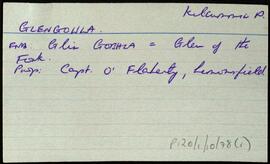 Kilcummin P.
GLENGOWLA.
Glin Gobhla = Glen of the
Fork.
Prop: Capt. O' Flaherty, Lemonfield
P120/1/10/78(1)